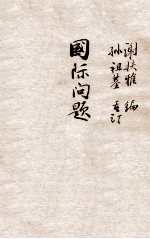 谢扶雅 编
孙祖基 订
國际问题